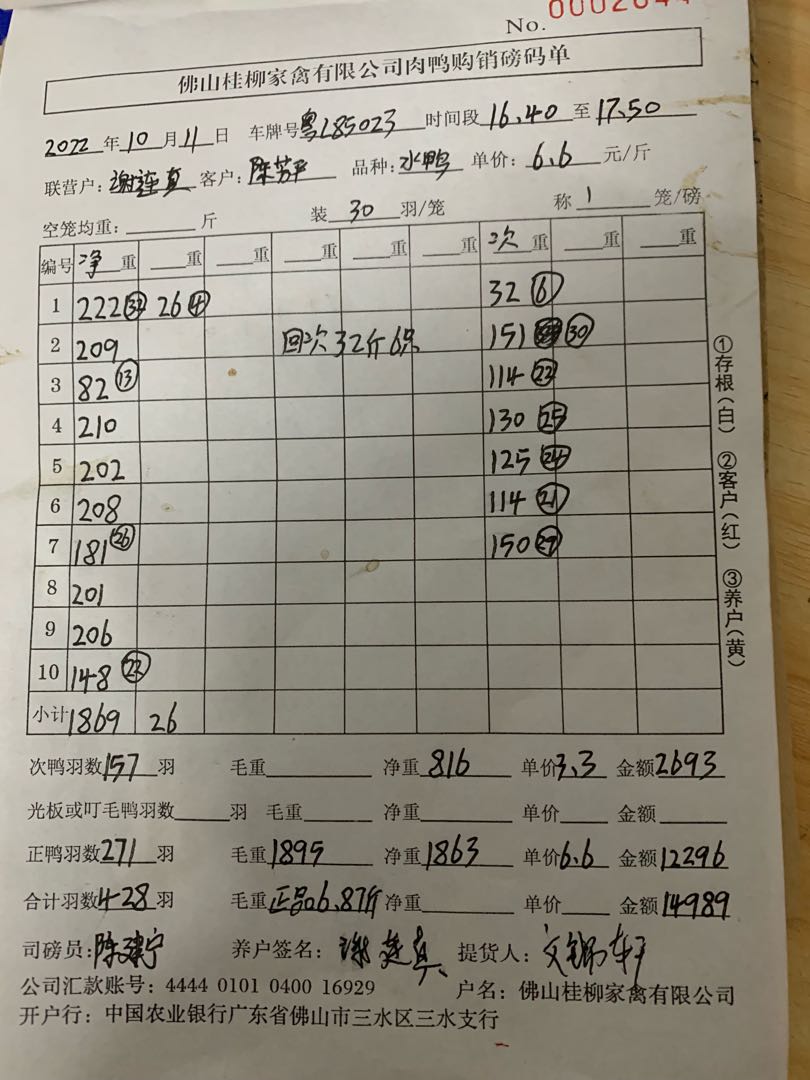 No. 0002644
佛山桂柳家禽有限公司肉鸭购销磅码单
2022年10月11日 车牌号粤L85023 时间段16.40至17.50
联营户:谢莲真 客户:陈芳平 品种:水鸭 单价:6.6元/斤
空笼均重:____斤 装30羽/笼 称1笼/磅
编号 净重 ___重 ___重 ___重 ___重 ___重 次重 ___重 ___重
1 222 26④ 32⑥
2 209 回次32斤6只 151㉚
3 82⑬ 114
4 210 130㉕
5 202 125㉔
6 208 114㉑
7 181㉖ 150㉗
8 201
9 206
10 148
小计 1869 26
次鸭羽数157羽 毛重____ 净重816 单价3.3 金额2693
光板或叮毛鸭羽数____羽 毛重____ 净重____ 单价____ 金额____
正鸭羽数271羽 毛重1895 净重1863 单价6.6 金额12296
合计羽数428羽 毛重正品6.87斤 净重____ 单价____ 金额14989
司磅员:陈建宁 养户签名:谢莲真 提货人:
公司汇款账号:4444 0101 0400 16929 户名:佛山桂柳家禽有限公司
开户行:中国农业银行广东省佛山市三水区三水支行
①存根(白) ②客户(红) ③养户(黄)